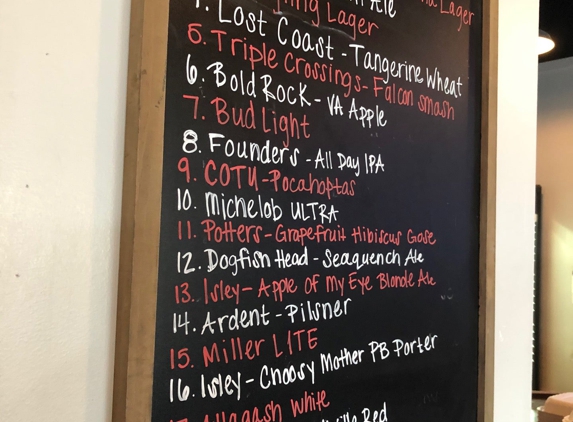 Ale
Lager
Lager
Lost Coast - Tangerine Wheat
5. Triple Crossings - Falcon Smash
6. Bold Rock - VA Apple
7. Bud Light
8. Founders - All Day IPA
9. COTU - Pocahoptas
10. Michelob ULTRA
11. Potters - Grapefruit Hibiscus Gose
12. Dogfish Head - Seaquench Ale
13. Isley - Apple of My Eye Blonde Ale
14. Ardent - Pilsner
15. Miller LITE
16. Isley - Choosy Mother PB Porter
Allagash White
Red